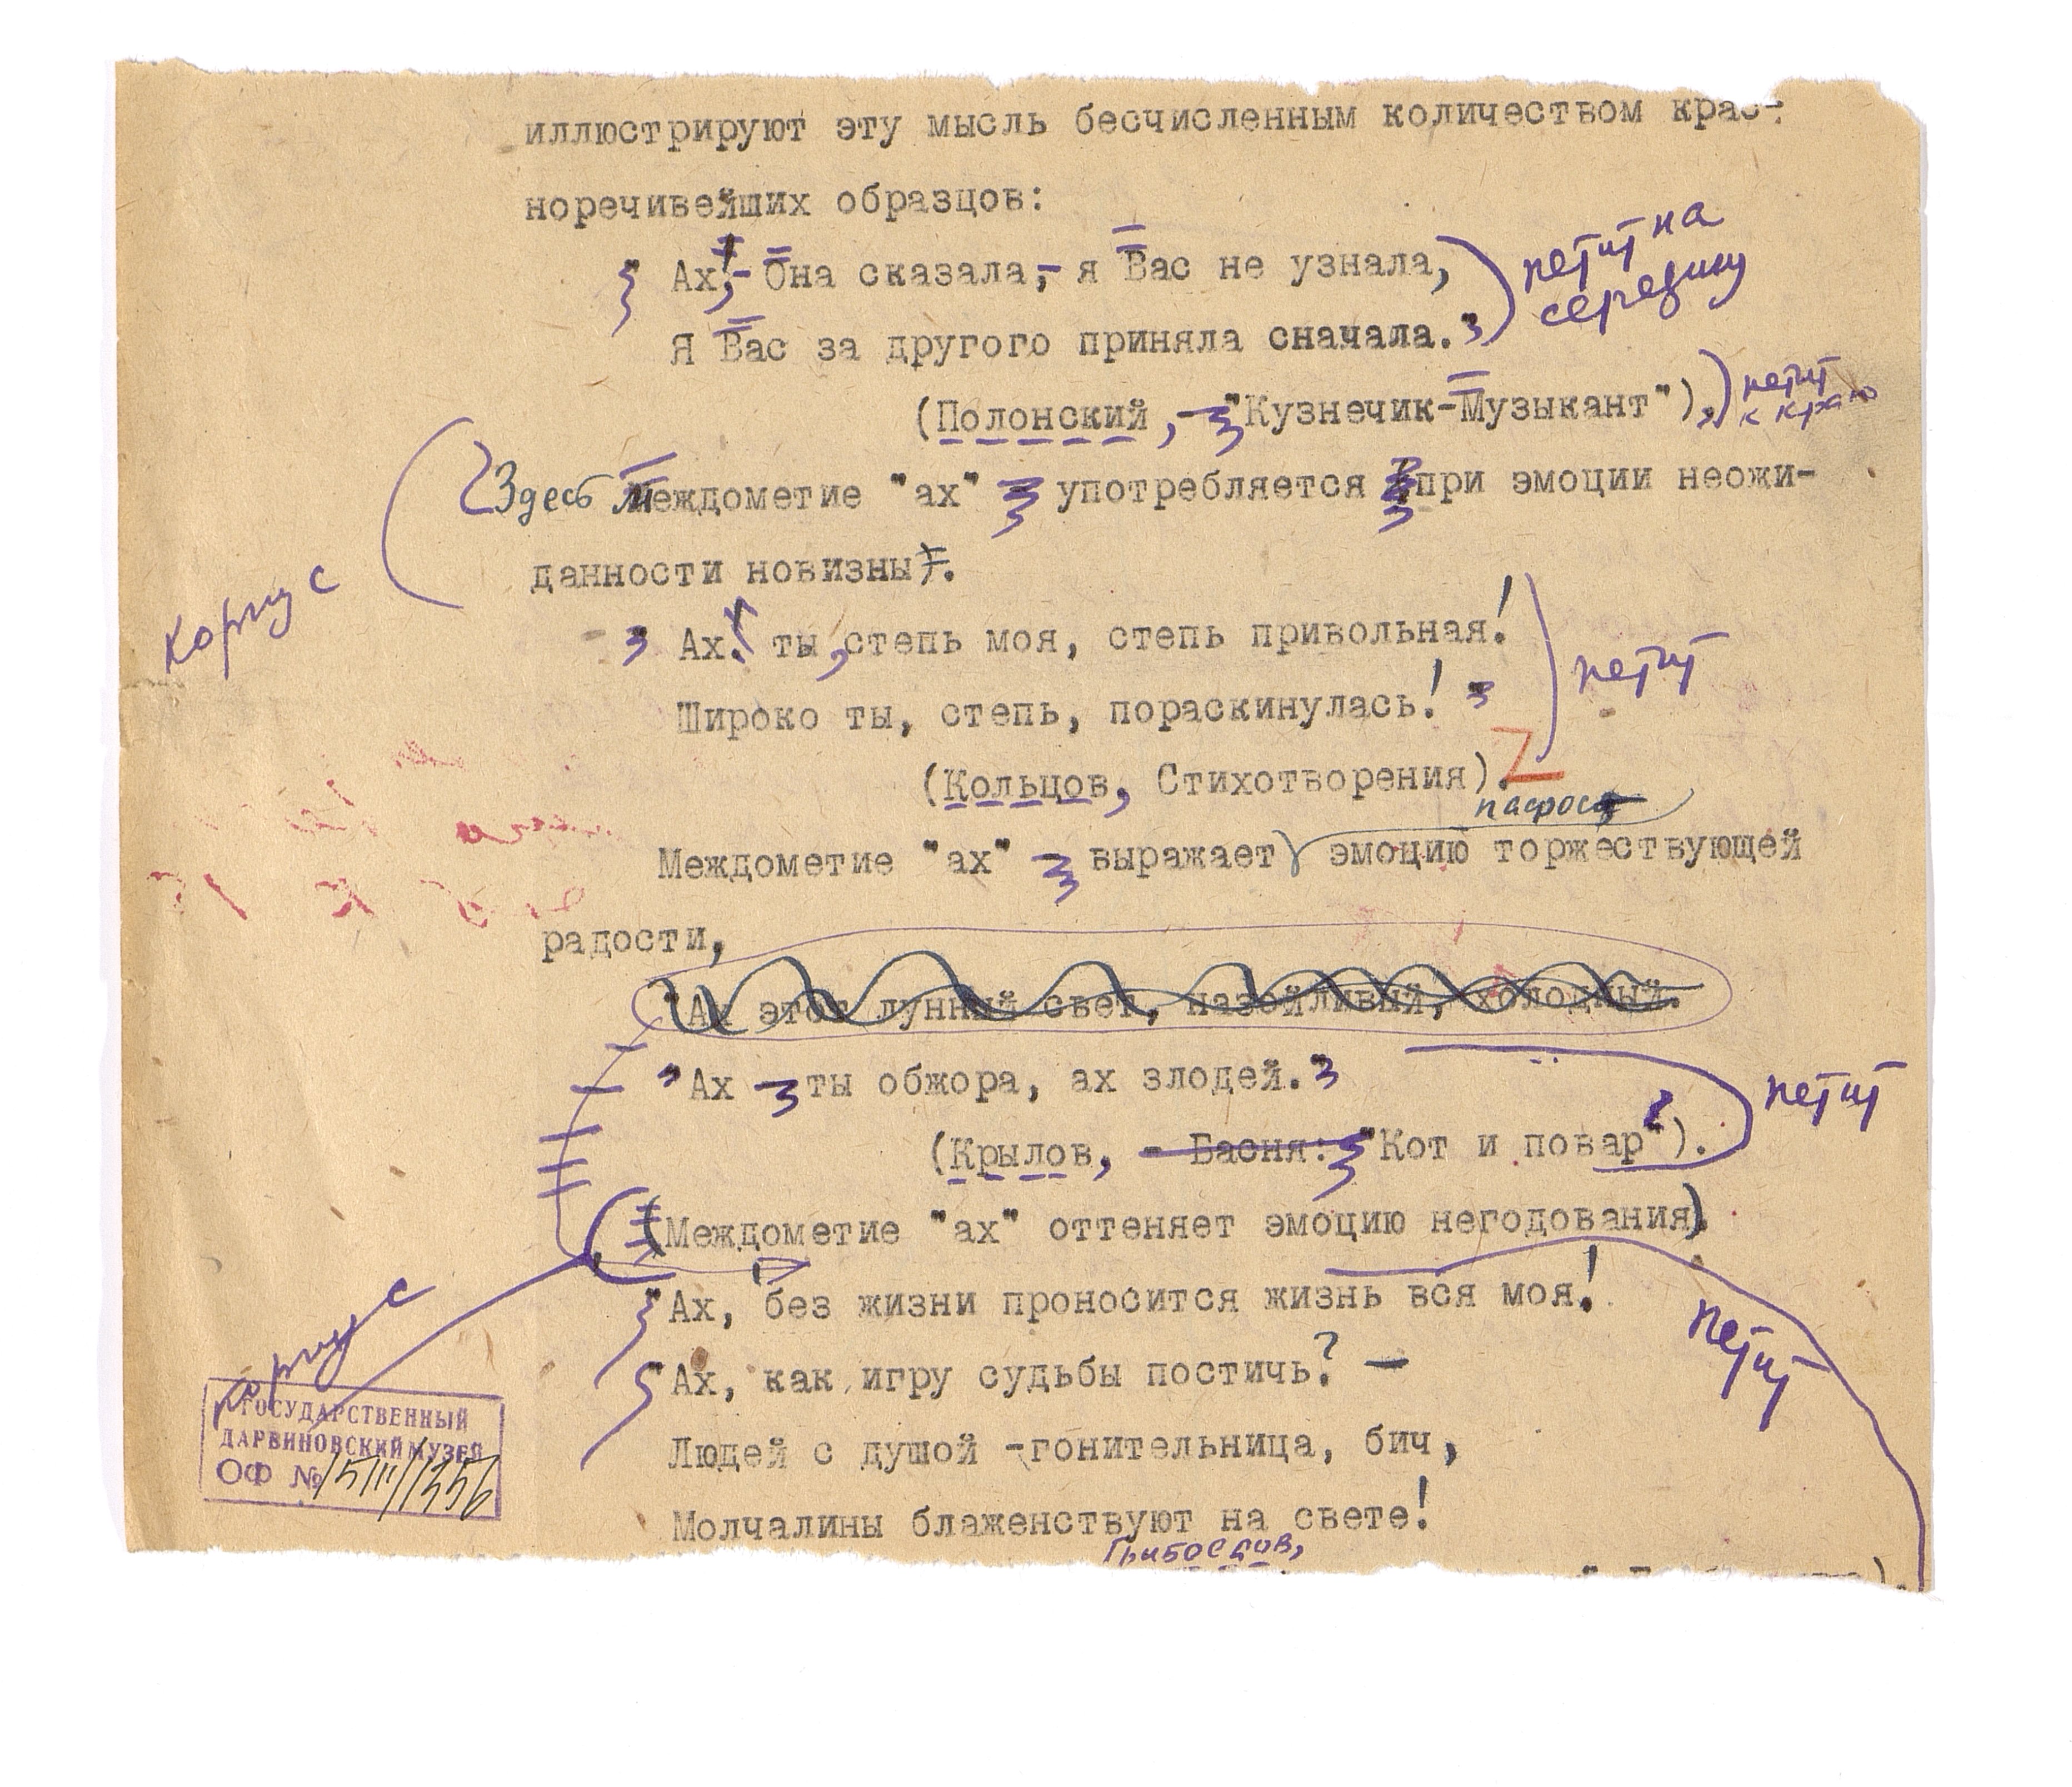 иллюстрируют эту мысль бесчисленным количеством крас-
норечивейших образцов:
"Ах!- Она сказала,- я Вас не узнала,
Я Вас за другого приняла сначала."
петит на
середину
(Полонский, "Кузнечик-Музыкант").
петит
к краю
Здесь междометие "ах" употребляется при эмоции неожи-
данности новизны.
корпус
Ах! ты, степь моя, степь привольная!
Широко ты, степь, пораскинулась!
петит
(Кольцов, Стихотворения).
пафос
Междометие "ах" выражает эмоцию торжествующей
радости,
"Ах этот лунный свет, назойливый, холодный.
"Ах ты обжора, ах злодей.
петит
(Крылов, - Басня: "Кот и повар").
(Междометие "ах" оттеняет эмоцию негодования).
корпус
"Ах, без жизни проносится жизнь вся моя!
петит
"Ах, как игру судьбы постичь? —
Людей с душой -гонительница, бич,
Молчалины блаженствуют на свете!
Грибоедов,
ГОСУДАРСТВЕННЫЙ
ДАРВИНОВСКИЙ МУЗЕЙ
ОФ №